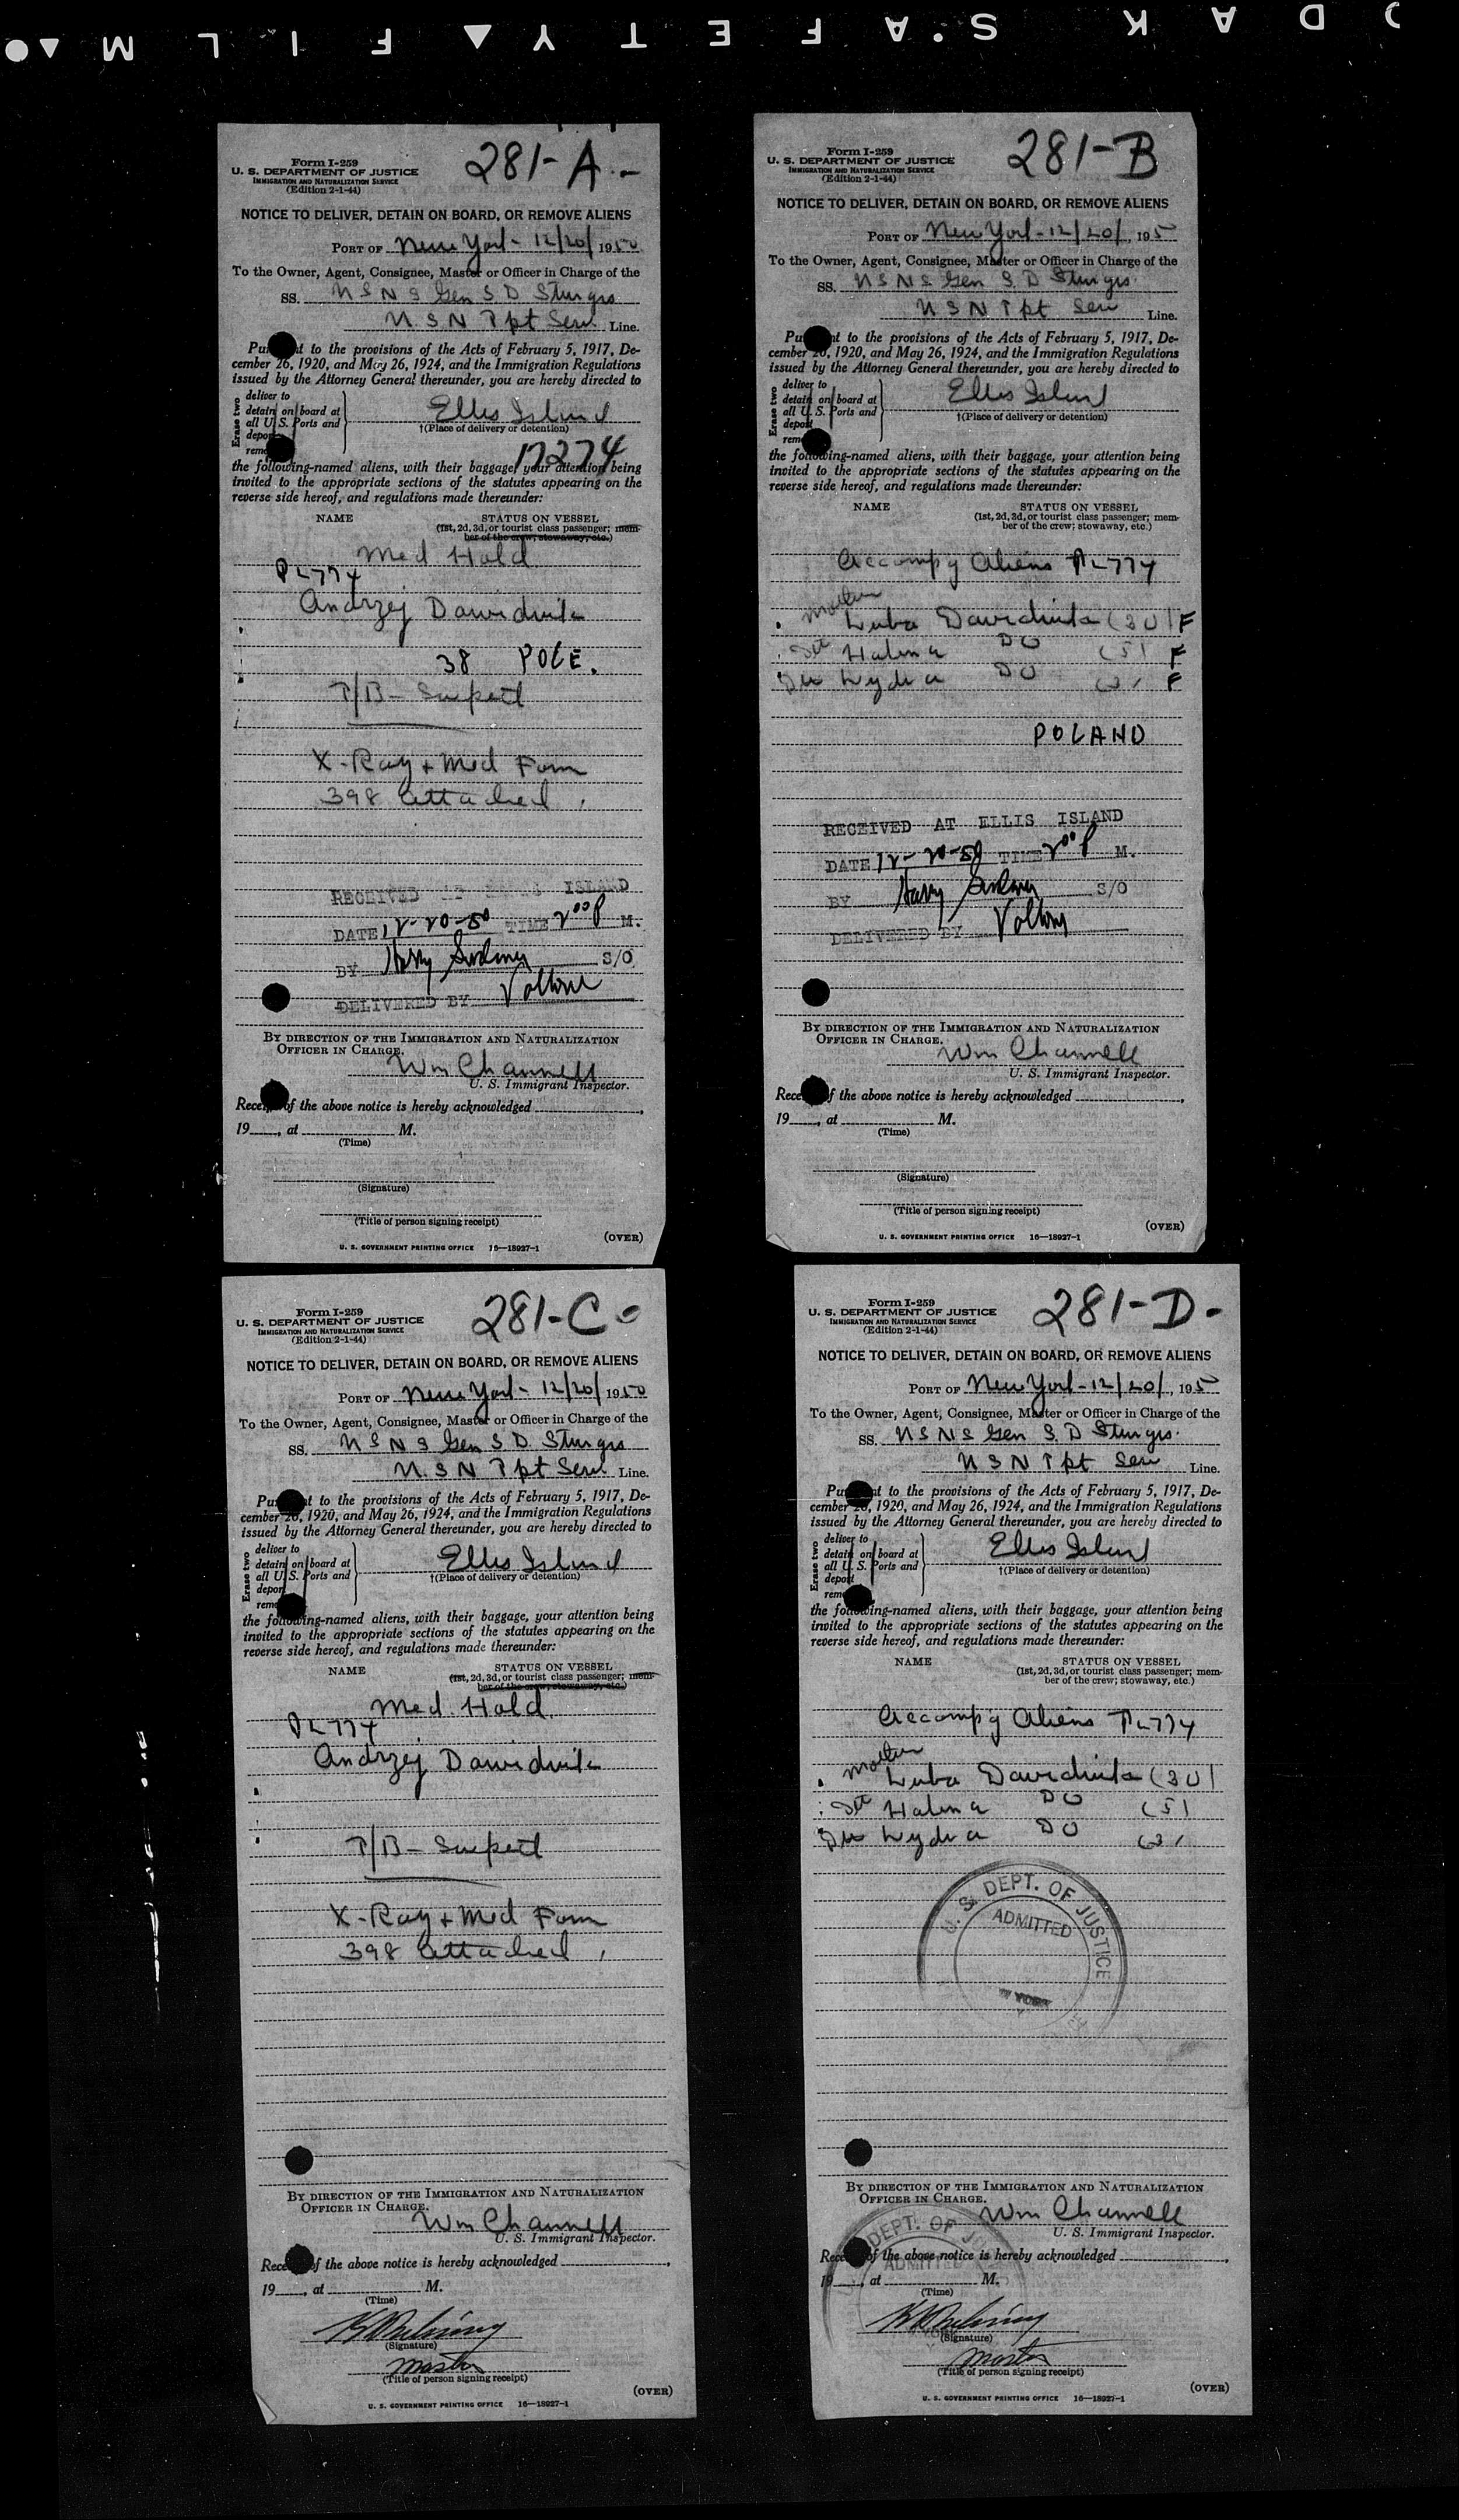 KODAK SAFETY FILM
281-A -
Form I-259
U. S. DEPARTMENT OF JUSTICE
IMMIGRATION AND NATURALIZATION SERVICE
(Edition 2-1-44)
NOTICE TO DELIVER, DETAIN ON BOARD, OR REMOVE ALIENS
PORT OF New York - 12/20/1950
To the Owner, Agent, Consignee, Master or Officer in Charge of the
SS. U S N S Gen S D Sturgis
U. S N Tpt Serv. Line.
to the provisions of the Acts of February 5, 1917, De-
cember 26, 1920, and May 26, 1924, and the Immigration Regulations
issued by the Attorney General thereunder, you are hereby directed to
Erase two
deliver to
detain on board at
all U. S. Ports and
Ellis Island
†(Place of delivery or detention)
17274
the following-named aliens, with their baggage, your attention being
invited to the appropriate sections of the statutes appearing on the
reverse side hereof, and regulations made thereunder:
NAME STATUS ON VESSEL
(1st, 2d, 3d, or tourist class passenger; mem-
ber of the crew; stowaway, etc.)
Med Hold
PL774
Andrzej Dawidiuk
38 POLE.
T/B - Suspect
X-Ray + Med Form
398 attached.
RECEIVED ISLAND
DATE 12-20-50 TIME 2 00 P M.
BY Harry S/O
DELIVERED BY
BY DIRECTION OF THE IMMIGRATION AND NATURALIZATION
OFFICER IN CHARGE.
Wm Channell
U. S. Immigrant Inspector.
of the above notice is hereby acknowledged
19 , at M.
(Time)
(Signature)
(Title of person signing receipt)
(OVER)
U. S. GOVERNMENT PRINTING OFFICE 16—18927-1
281-B
Form I-259
U. S. DEPARTMENT OF JUSTICE
IMMIGRATION AND NATURALIZATION SERVICE
(Edition 2-1-44)
NOTICE TO DELIVER, DETAIN ON BOARD, OR REMOVE ALIENS
PORT OF New York - 12/20/, 195
To the Owner, Agent, Consignee, Master or Officer in Charge of the
SS. U S N S Gen S. D Sturgis.
U S N Tpt Serv Line.
to the provisions of the Acts of February 5, 1917, De-
cember 26, 1920, and May 26, 1924, and the Immigration Regulations
issued by the Attorney General thereunder, you are hereby directed to
Erase two
deliver to
detain on board at
all U. S. Ports and
deport
Ellis Island
†(Place of delivery or detention)
the following-named aliens, with their baggage, your attention being
invited to the appropriate sections of the statutes appearing on the
reverse side hereof, and regulations made thereunder:
NAME STATUS ON VESSEL
(1st, 2d, 3d, or tourist class passenger; mem-
ber of the crew; stowaway, etc.)
Accompg Aliens PL774
Mother Luba Dawidiuk (30) F
Halina DO (5) F
Lydia DO (3) F
POLAND
RECEIVED AT ELLIS ISLAND
DATE 12-20-50 TIME 2 00 P M.
BY Harry S/O
DELIVERED BY
BY DIRECTION OF THE IMMIGRATION AND NATURALIZATION
OFFICER IN CHARGE.
Wm Channell
U. S. Immigrant Inspector.
of the above notice is hereby acknowledged
19 , at M.
(Time)
(Signature)
(Title of person signing receipt)
(OVER)
U. S. GOVERNMENT PRINTING OFFICE 16—18927-1
281-C -
Form I-259
U. S. DEPARTMENT OF JUSTICE
IMMIGRATION AND NATURALIZATION SERVICE
(Edition 2-1-44)
NOTICE TO DELIVER, DETAIN ON BOARD, OR REMOVE ALIENS
PORT OF New York - 12/20/1950
To the Owner, Agent, Consignee, Master or Officer in Charge of the
SS. U S N S Gen S D. Sturgis
U. S N Tpt Serv. Line.
to the provisions of the Acts of February 5, 1917, De-
cember 26, 1920, and May 26, 1924, and the Immigration Regulations
issued by the Attorney General thereunder, you are hereby directed to
Erase two
deliver to
detain on board at
all U. S. Ports and
deport
Ellis Island
†(Place of delivery or detention)
the following-named aliens, with their baggage, your attention being
invited to the appropriate sections of the statutes appearing on the
reverse side hereof, and regulations made thereunder:
NAME STATUS ON VESSEL
(1st, 2d, 3d, or tourist class passenger; mem-
ber of the crew; stowaway, etc.)
Med. Hold
PL774
Andrzej Dawidiuk
T/B - Suspect
X-Ray + Med Form
398 attached.
BY DIRECTION OF THE IMMIGRATION AND NATURALIZATION
OFFICER IN CHARGE.
Wm Channell
U. S. Immigrant Inspector.
of the above notice is hereby acknowledged
19 , at M.
(Time)
(Signature)
Master
(Title of person signing receipt)
(OVER)
U. S. GOVERNMENT PRINTING OFFICE 16—18927-1
281-D -
Form I-259
U. S. DEPARTMENT OF JUSTICE
IMMIGRATION AND NATURALIZATION SERVICE
(Edition 2-1-44)
NOTICE TO DELIVER, DETAIN ON BOARD, OR REMOVE ALIENS
PORT OF New York - 12/20/, 195
To the Owner, Agent, Consignee, Master or Officer in Charge of the
SS. U S N S Gen S. D Sturgis.
U S N Tpt Serv Line.
to the provisions of the Acts of February 5, 1917, De-
cember 26, 1920, and May 26, 1924, and the Immigration Regulations
issued by the Attorney General thereunder, you are hereby directed to
Erase two
deliver to
detain on board at
all U. S. Ports and
deport
Ellis Island
†(Place of delivery or detention)
the following-named aliens, with their baggage, your attention being
invited to the appropriate sections of the statutes appearing on the
reverse side hereof, and regulations made thereunder:
NAME STATUS ON VESSEL
(1st, 2d, 3d, or tourist class passenger; mem-
ber of the crew; stowaway, etc.)
Accompg Aliens PL774
Mother Luba Dawidiuk (30)
Halina DO (5)
Lydia DO (3)
U. S. DEPT. OF JUSTICE
ADMITTED
BY DIRECTION OF THE IMMIGRATION AND NATURALIZATION
OFFICER IN CHARGE.
Wm Channell
U. S. Immigrant Inspector.
DEPT. OF
ADMITTED
of the above notice is hereby acknowledged
19 , at M.
(Time)
(Signature)
Master
(Title of person signing receipt)
(OVER)
U. S. GOVERNMENT PRINTING OFFICE 16—18927-1